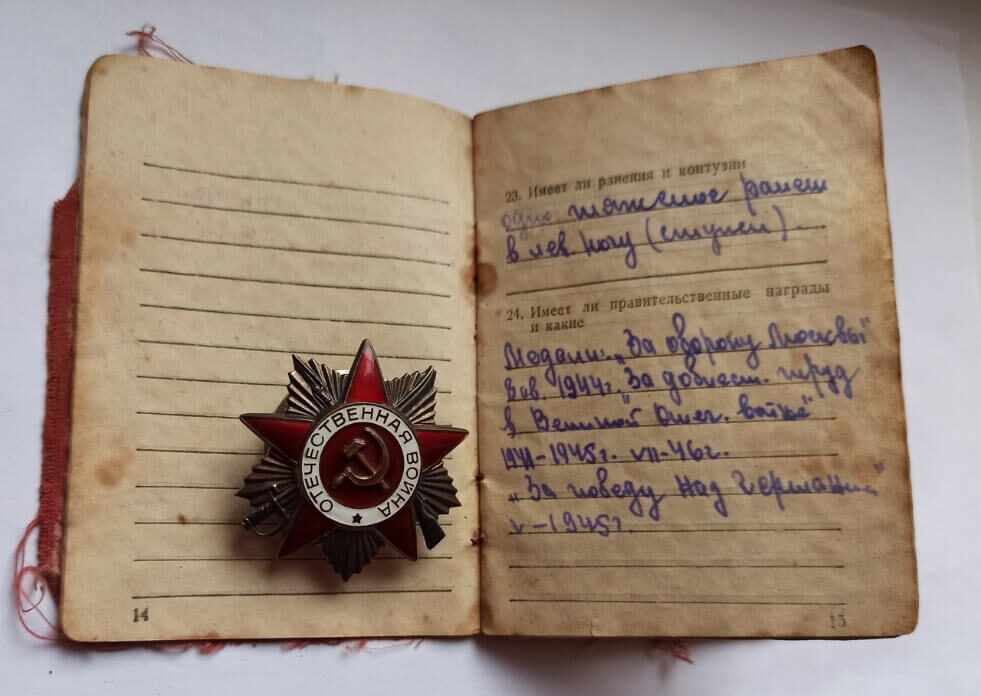 ОТЕЧЕСТВЕННАЯ ВОЙНА
14
23. Имеет ли ранения и контузии
одно тяжелое ранен
в лев. ногу (ступен).
24. Имеет ли правительственные награды
и какие
Медали: „За оборону Москвы"
1944г. „За доблест. труд
в Великой Отеч. войне"
1941-1945г. VII-46г.
„За победу над Германи
V-1945г
15